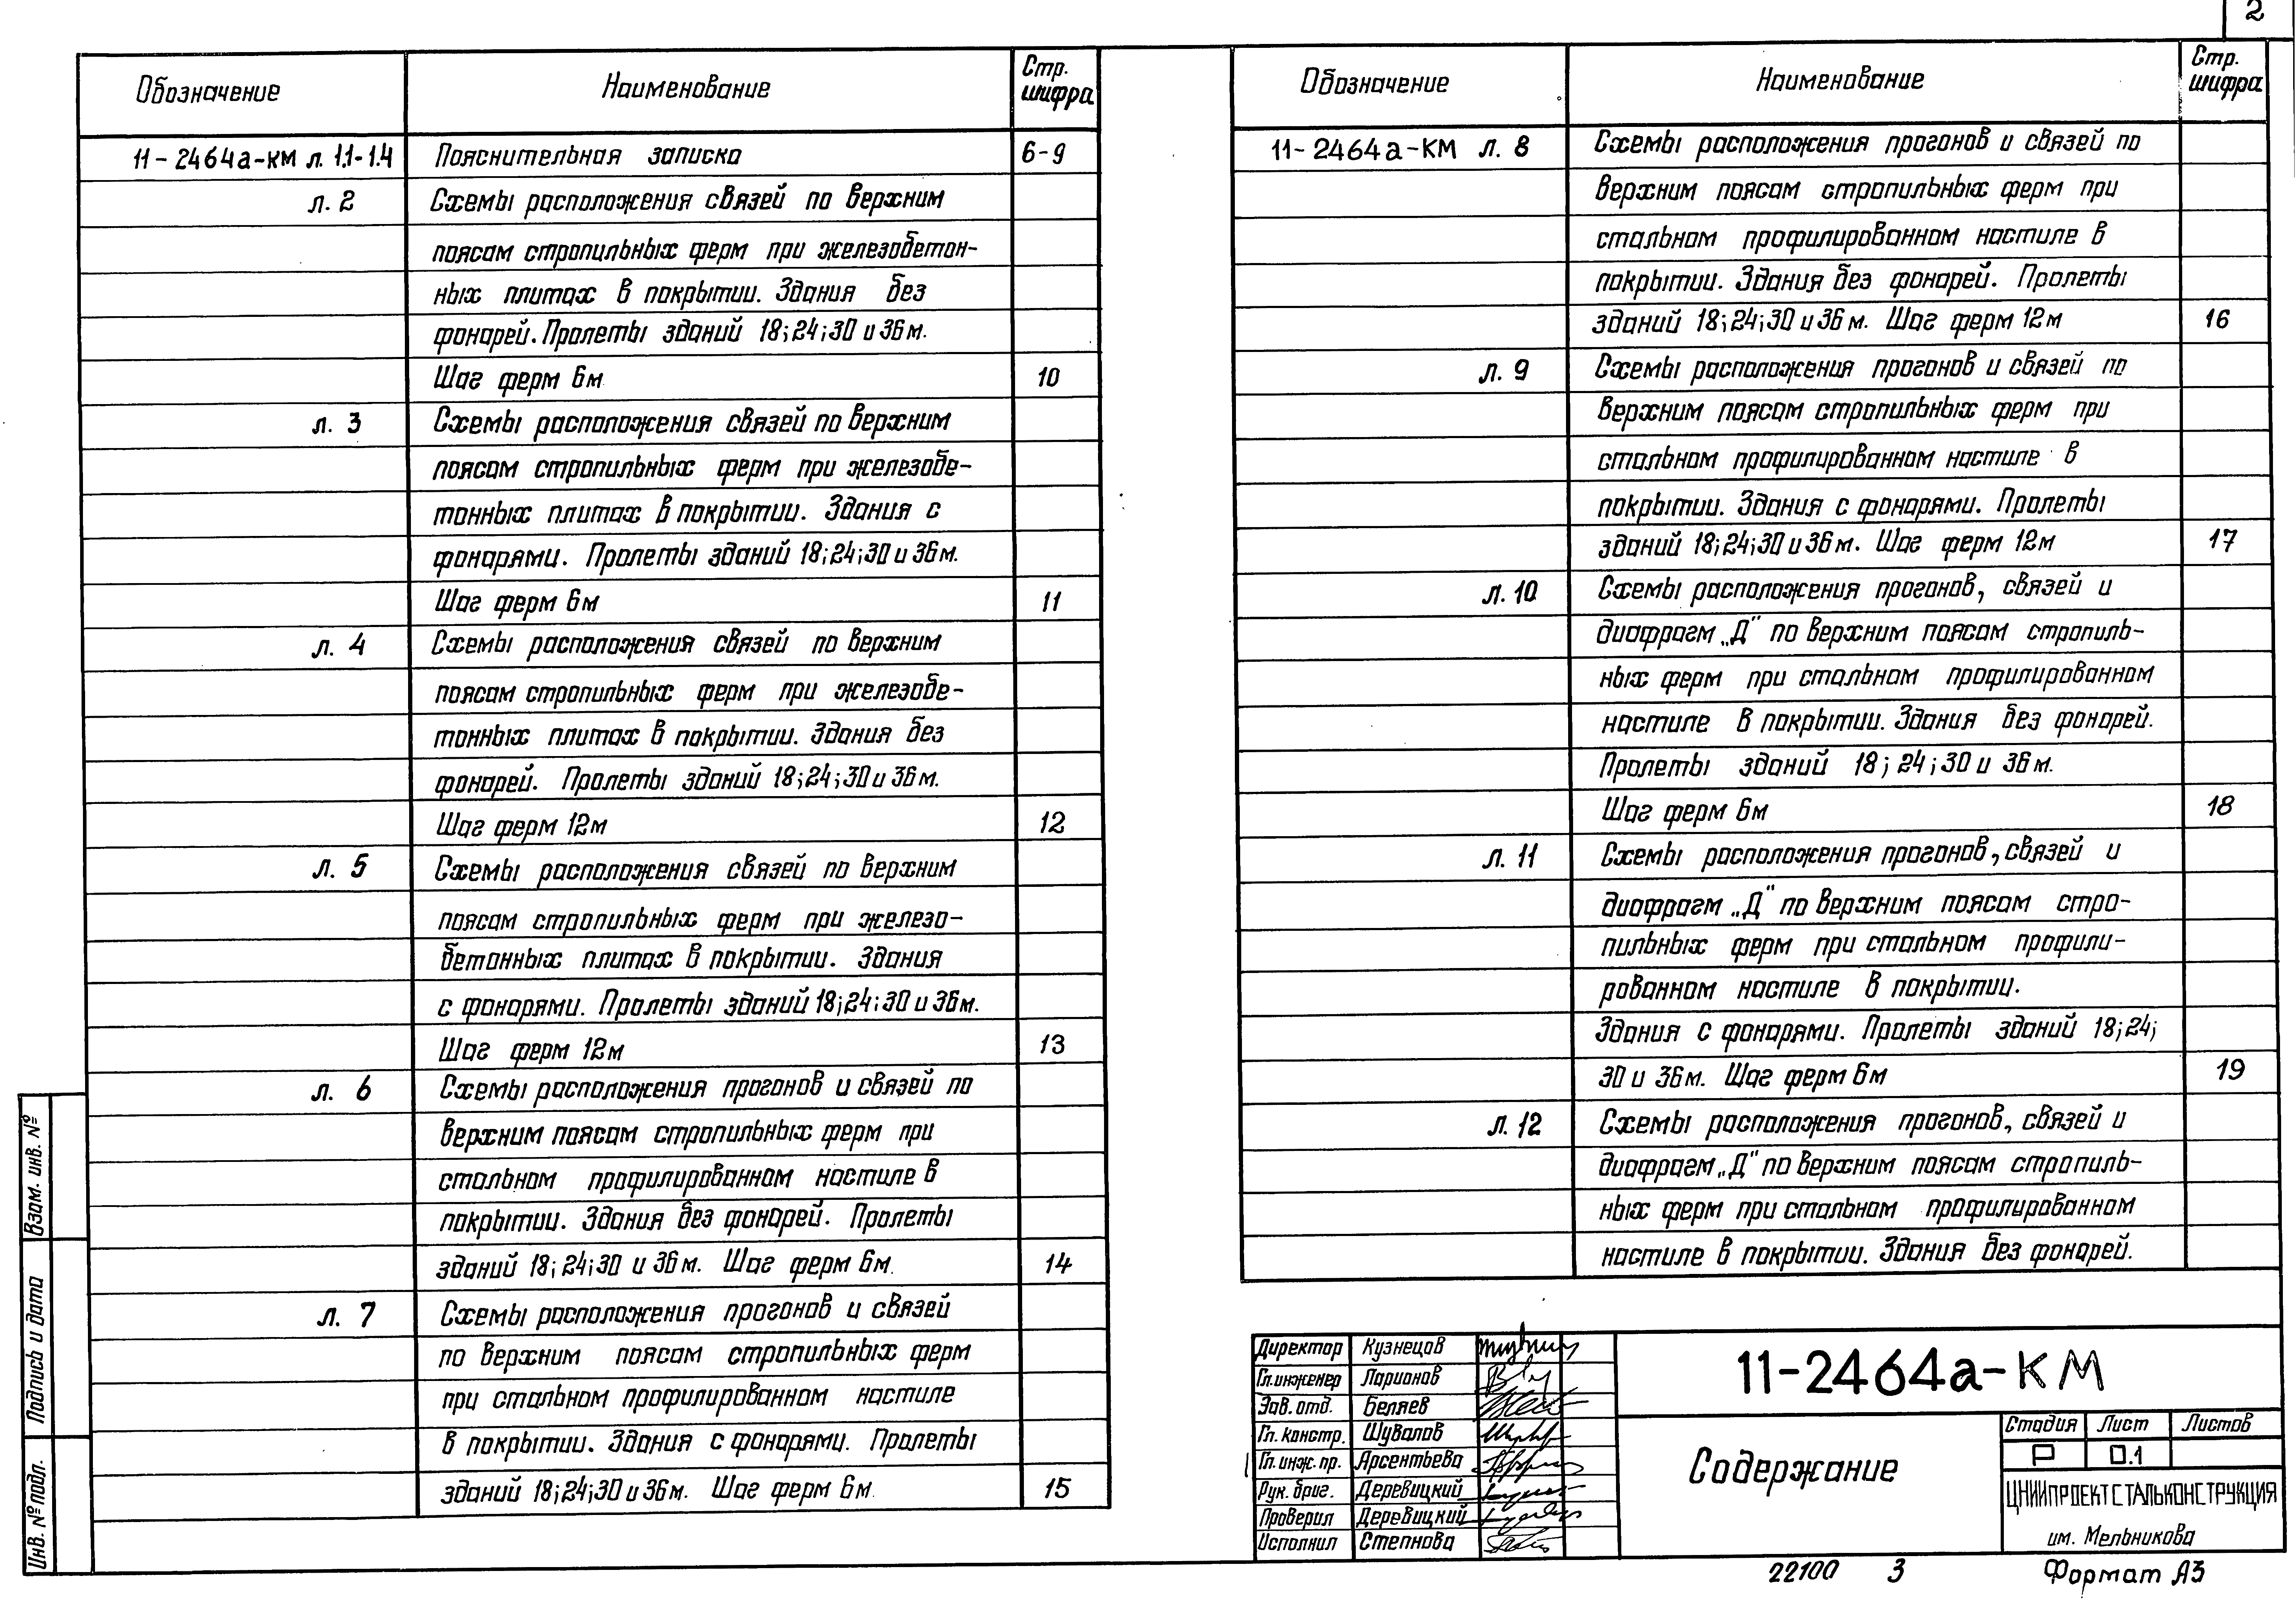 2
Обозначение Наименование Стр. шифра
11-2464а-КМ л. 1.1-1.4 Пояснительная записка 6-9
л. 2 Схемы расположения связей по верхним
поясам стропильных ферм при железобетон-
ных плитах в покрытии. Здания без
фонарей. Пролеты зданий 18; 24; 30 и 36 м.
Шаг ферм 6м 10
л. 3 Схемы расположения связей по верхним
поясам стропильных ферм при железобе-
тонных плитах в покрытии. Здания с
фонарями. Пролеты зданий 18; 24; 30 и 36 м.
Шаг ферм 6м 11
л. 4 Схемы расположения связей по верхним
поясам стропильных ферм при железобе-
тонных плитах в покрытии. Здания без
фонарей. Пролеты зданий 18; 24; 30 и 36 м.
Шаг ферм 12м 12
л. 5 Схемы расположения связей по верхним
поясам стропильных ферм при железо-
бетонных плитах в покрытии. Здания
с фонарями. Пролеты зданий 18; 24; 30 и 36 м.
Шаг ферм 12м 13
л. 6 Схемы расположения прогонов и связей по
верхним поясам стропильных ферм при
стальном профилированном настиле в
покрытии. Здания без фонарей. Пролеты
зданий 18; 24; 30 и 36 м. Шаг ферм 6м. 14
л. 7 Схемы расположения прогонов и связей
по верхним поясам стропильных ферм
при стальном профилированном настиле
в покрытии. Здания с фонарями. Пролеты
зданий 18; 24; 30 и 36 м. Шаг ферм 6м. 15
Обозначение Наименование Стр. шифра
11-2464а-КМ л. 8 Схемы расположения прогонов и связей по
верхним поясам стропильных ферм при
стальном профилированном настиле в
покрытии. Здания без фонарей. Пролеты
зданий 18; 24; 30 и 36 м. Шаг ферм 12м 16
л. 9 Схемы расположения прогонов и связей по
верхним поясам стропильных ферм при
стальном профилированном настиле в
покрытии. Здания с фонарями. Пролеты
зданий 18; 24; 30 и 36 м. Шаг ферм 12м 17
л. 10 Схемы расположения прогонов, связей и
диафрагм „Д" по верхним поясам стропиль-
ных ферм при стальном профилированном
настиле в покрытии. Здания без фонарей.
Пролеты зданий 18; 24; 30 и 36 м.
Шаг ферм 6м 18
л. 11 Схемы расположения прогонов, связей и
диафрагм „Д" по верхним поясам стро-
пильных ферм при стальном профили-
рованном настиле в покрытии.
Здания с фонарями. Пролеты зданий 18; 24;
30 и 36 м. Шаг ферм 6м 19
л. 12 Схемы расположения прогонов, связей и
диафрагм „Д" по верхним поясам стропиль-
ных ферм при стальном профилированном
настиле в покрытии. Здания без фонарей.
Взам. инв. №
Подпись и дата
Инв. № подл.
Директор Кузнецов
Гл. инженер Ларионов
Зав. отд. Беляев
Гл. констр. Шувалов
Гл. инж. пр. Арсентьева
Рук. бриг. Деревицкий
Проверил Деревицкий
Исполнил Степнова
11-2464а-КМ
Содержание
Стадия Лист Листов
Р 0.1
ЦНИИПРОЕКТСТАЛЬКОНСТРУКЦИЯ
им. Мельникова
22100 3 Формат А3